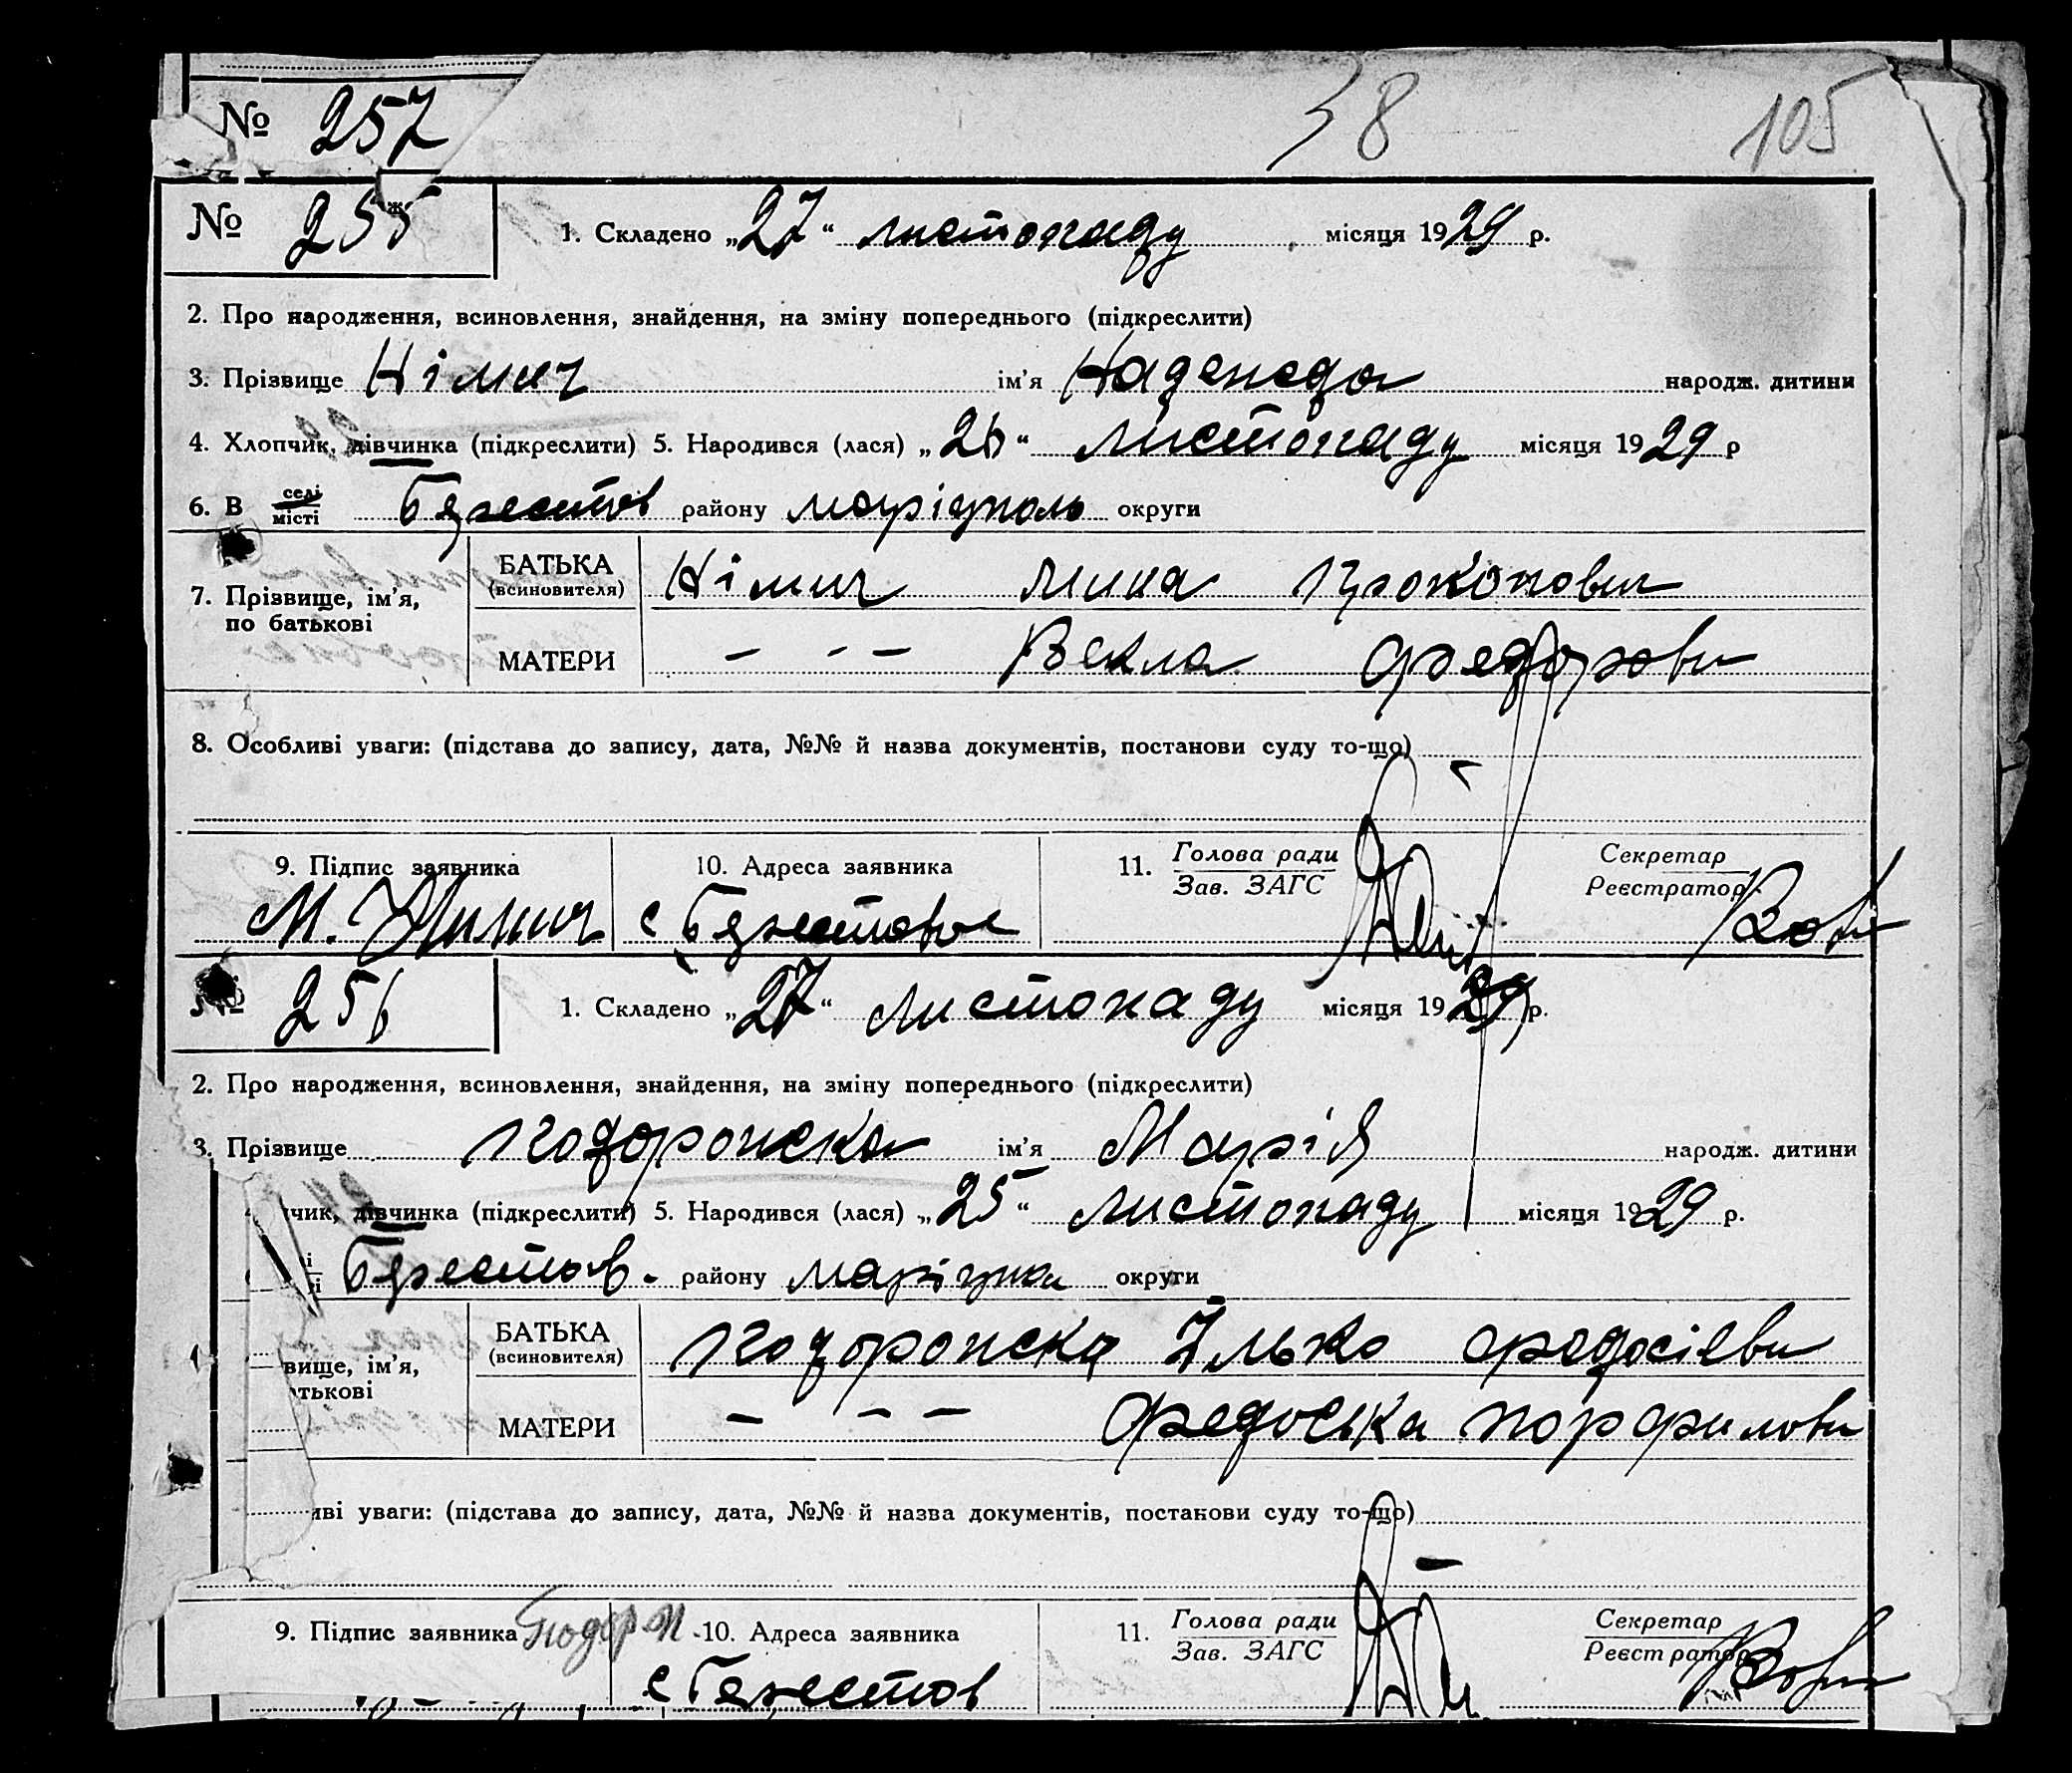 № 257
38 105
№ 255 1. Складено „27“ листопаду місяця 1929 р.
2. Про народження, всиновлення, знайдення, на зміну попереднього (підкреслити)
3. Прізвище Німич ім’я Надежда народж. дитини
4. Хлопчик, дівчинка (підкреслити) 5. Народився (лася) „26“ листопаду місяця 1929 р
6. В селі місті Бересто́в району маріуполь округи
7. Прізвище, ім’я, по батькові
БАТЬКА (всиновителя) Німич Мина прокопович
МАТЕРИ — - — Векла федорови
8. Особливі уваги: (підстава до запису, дата, №№ й назва документів, постанови суду то-що)
9. Підпис заявника 10. Адреса заявника 11. Голова ради Зав. ЗАГС Секретар Реєстратор
М. Нимич с Берестовое
№ 256 1. Складено „27“ листопаду місяця 1929 р.
2. Про народження, всиновлення, знайдення, на зміну попереднього (підкреслити)
3. Прізвище подоронска ім’я Марія народж. дитини
чик, дівчинка (підкреслити) 5. Народився (лася) „25“ листопаду місяця 1929 р.
Берестов. району маріупол округи
вище, ім’я,
тькові
БАТЬКА (всиновителя) Ілько федосієви
МАТЕРИ — — — федоська порфилови
иві уваги: (підстава до запису, дата, №№ й назва документів, постанови суду то-що)
9. Підпис заявника 10. Адреса заявника 11. Голова ради Зав. ЗАГС Секретар Реєстратор
с Берестов